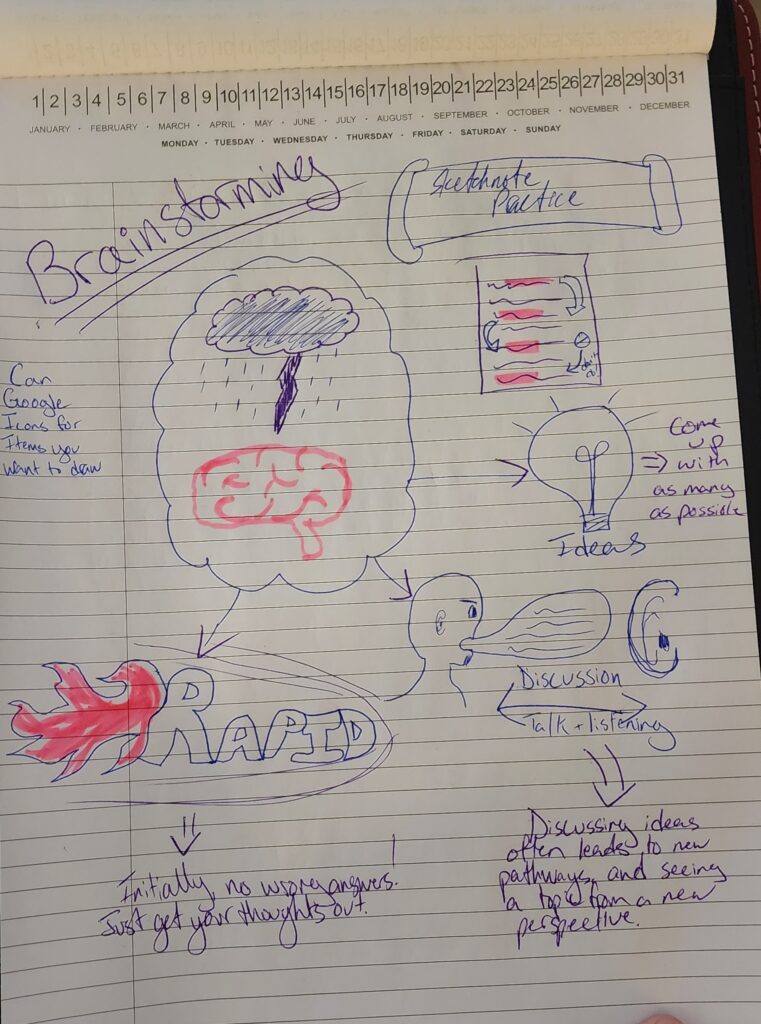 1 | 2 | 3 | 4 | 5 | 6 | 7 | 8 | 9 | 10 | 11 | 12 | 13 | 14 | 15 | 16 | 17 | 18 | 19 | 20 | 21 | 22 | 23 | 24 | 25 | 26 | 27 | 28 | 29 | 30 | 31
JANUARY · FEBRUARY · MARCH · APRIL · MAY · JUNE · JULY · AUGUST · SEPTEMBER · OCTOBER · NOVEMBER · DECEMBER
MONDAY · TUESDAY · WEDNESDAY · THURSDAY · FRIDAY · SATURDAY · SUNDAY
Brainstorming
Sketchnote
Practice
Can
Google
Icons for
Items you
want to draw
Ideas
⇒
Come
up
with
as many
as possible
Discussion
Talk + listening
RAPID
Initially, no wrong answers.
Just get your thoughts out.
Discussing ideas
often leads to new
pathways, and seeing
a topic from a new
perspective.